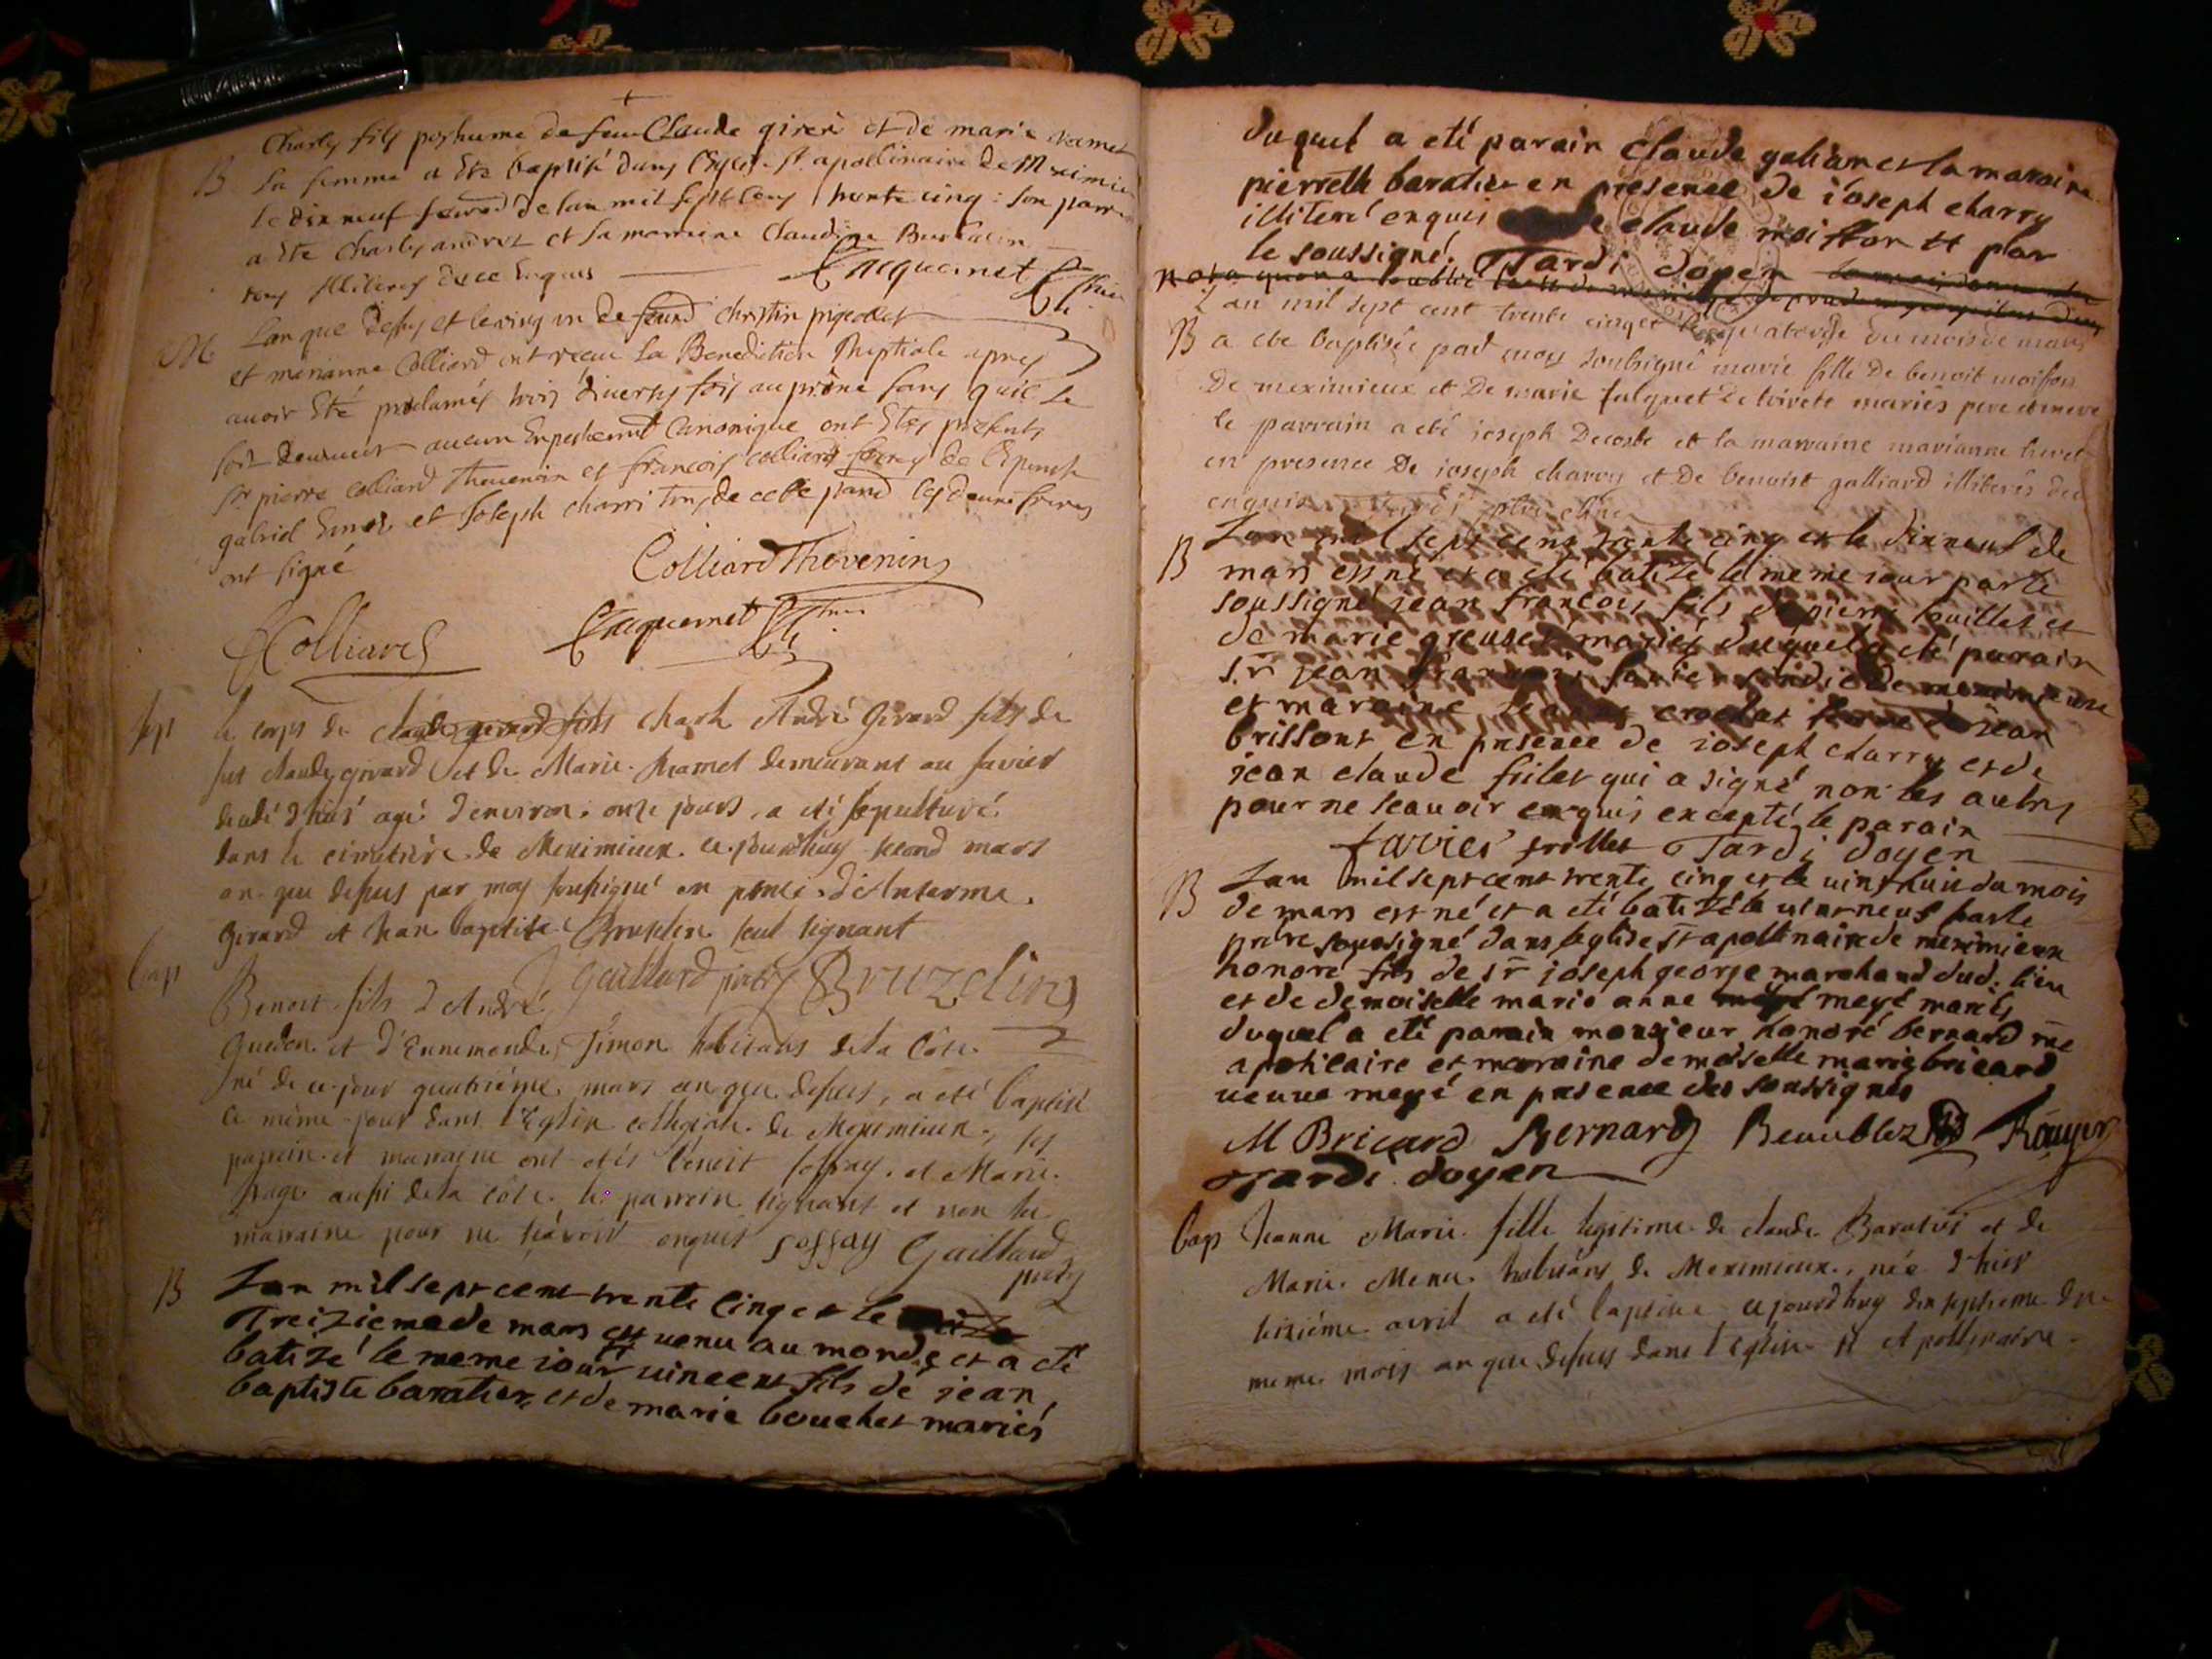 Charles fils posthume de feu Claude girer et de marie
B
sa femme a Eté baptisé dans l'Eglise St apollinaire de Meximieu
le dix neuf de lan mil sept cens trente cinq : son parrein
a Ete Charles andret et sa marreine Claudine
tous illiteres de ce Enquis
Jacquemet
M
Lan que dessus et le vingt un de christin pigeollet
et marianne Colliard ont reçeu La Benediction Nuptiale apres
avoir Eté proclamés trois diverses fois au prône sans quil se
soit decouvert aucun Enpeschement Canonique ont Etes presents
Sr pierre Colliard Thevenin et françois colliard freres de l'Epouse
gabriel et Joseph charri tous de cette les deux freres
ont signé
Colliard Thevenin
Colliard
Jacquemet
sep
le corps de claude girard fils Charle André Girard fils de
fut claude girard et de Marie hamel demeurant au favier
decedé d'hier agé d'environ onze jours, a eté sepulturé
dans le cimetière de Meximieux ce jourdhuy second mars
an que dessus par moy soussigné en d'Antesme
Girard et Jean baptiste Bruzelin seul signant
gaillard Bruzelin
bap
Benoit fils d'André
Guedon et d'Ennemonde Timon habitans de la Côte
né de ce jour quatriéme mars an que dessus, a eté baptisé
ce même jour dans l'Eglise collegiale de Meximieux, les
parrein et marraine ont etés benoit soffray et Marie
page aussi de la côte le parrein signant et non la
marraine pour ne sçavoir enquis soffay Gaillard
B
Lan mil sept cent trente cinq et le
Treizieme de mars est venu au monde et a eté
batizé le meme iour vincent fils de jean
baptiste baratier et de marie bouchet mariés
duquel a eté parain claude galian et la maraine
pierrette baratier en presence de ioseph charry
illiteré enquis claude moisson et par
le soussigné. Tardi doyen
Lan mil sept cent trente cinq et le quatorze du mois de mars
B
a ete baptisée par moy soubsigné marie fille de benoit moisson
De meximieux et De marie falquet de mariés pere et mere
le parrain a eté joseph Decoste et la marraine marianne
en presence De joseph charry et De benoist galliard illiterés de
enquis
B
Lan mil sept cent trente cinq et le dixneuf de
mars est né et a eté batizé le meme iour par le
soussigné jean françois fils de pierre et
de marie greuset mariés duquel a eté parain
s.r jean françois favier de meximieux
et maraine crochet femme de jean
brissont en presence de ioseph charry et de
jean claude frilet qui a signé non les autres
pour ne scauoir enquis excepté le parain
favier frillet Tardi doyen
B
Lan mil sept cent trente cinq et le uint huit du mois
de mars est né et a eté batizé le uint neuf par le
pretre soussigné dans leglise st apollinaire de meximieux
honoré fils de sr joseph george marchand dud. lieu
et de demoiselle marie anne meyé mariés
duquel a eté parain monsieur honoré bernard me
apoticaire et marraine demoiselle marie bricard
ueuue meyé en presence des soussignés
M Bricard Bernard Beaublez Rouyer
Tardi doyen
bap
Jeanne Marie fille legitime de claude Baratier et de
Marie Menu habitans de Meximieux, née d'hier
seiziéme avril a eté baptisée ce jourdhuy dix septieme du
meme mois an que dessus dans l'eglise st Apollinaire